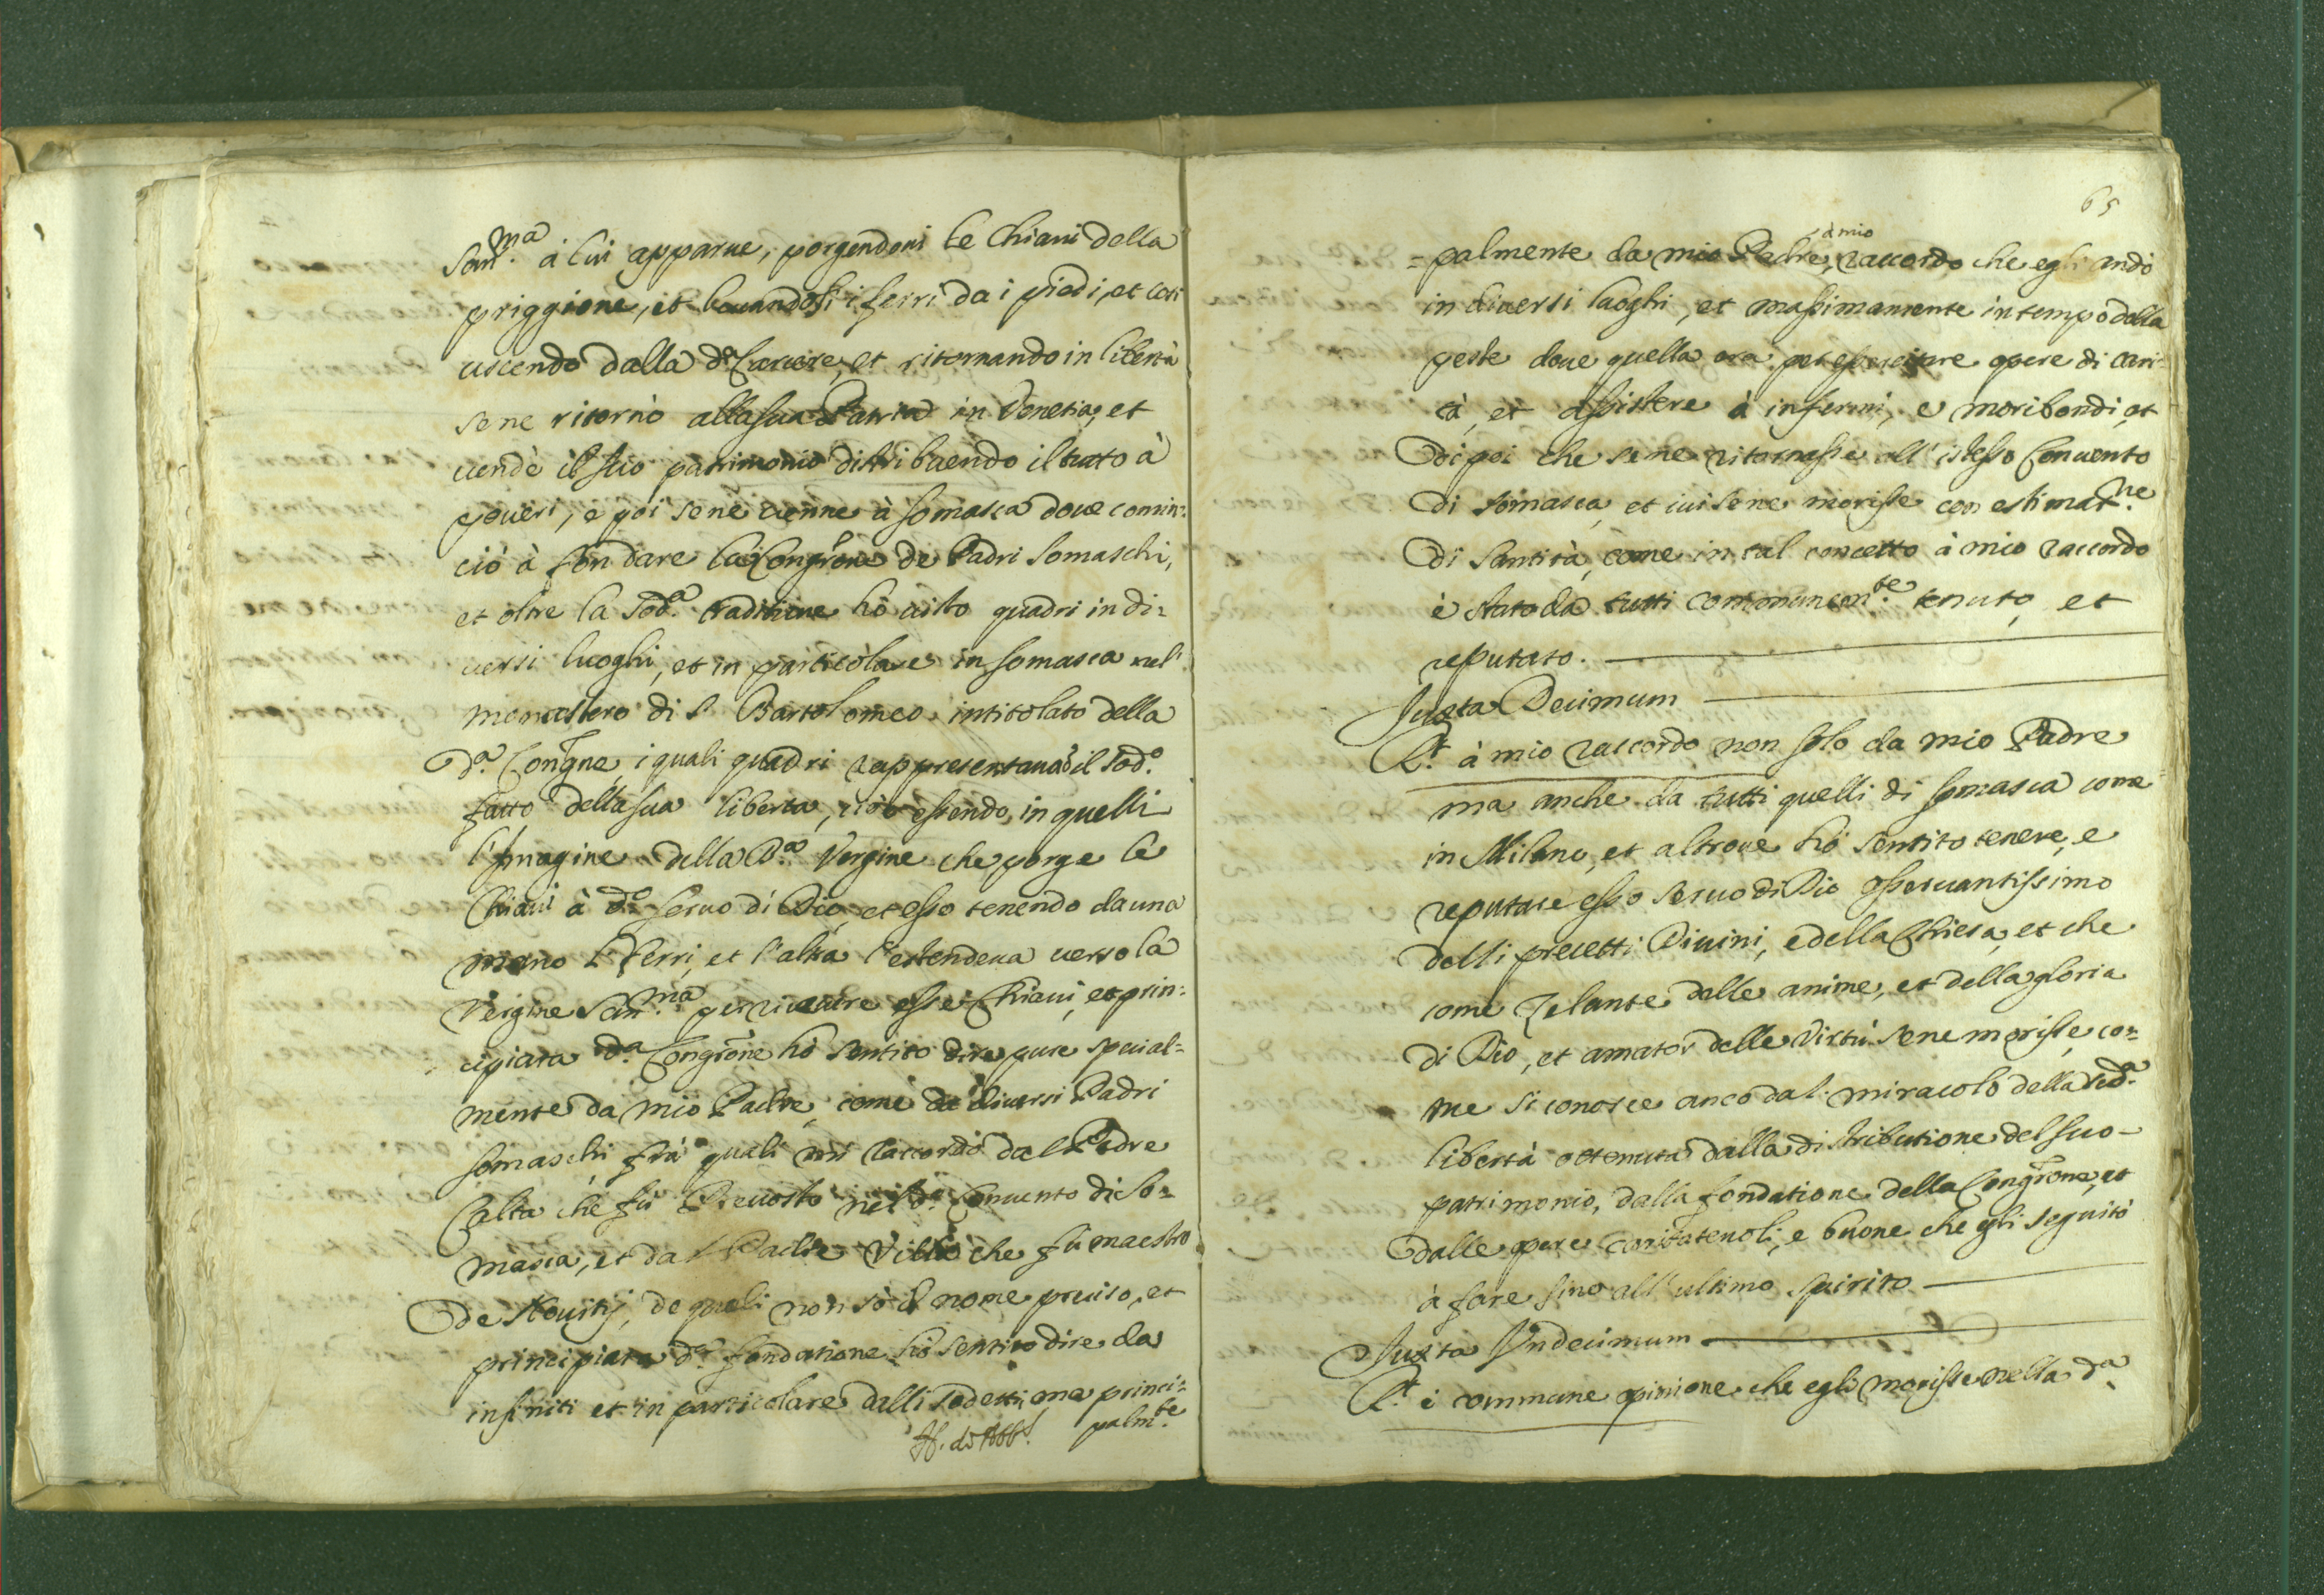 San.ma à lui apparue, porgendoui le Chiaui della
priggione, et leuandoli i ferri da i piedi, et cosi
uscendo dalla d.a Carcere, et ritornando in libertà
se ne ritornò alla sua Patria in Venetia, et
uendè il suo patrimonio distribuendo il tutto à
poueri, e poi se ne uenne à Somasca doue comin=
ciò à fondare la Congrone de Padri Somaschi,
et oltre la sod.a traditione hò uisto quadri in di=
uersi luoghi, et in particolare in Somasca nel
monastero di S. Bartolomeo intitolato della
d.a Congne, i quali quadri rappresentauano il sod.o
fatto della sua libertà, cioè essendo in quelli
l'Imagine della B.a Vergine che porge le
Chiaui à d.o Seruo di Dio, et esso tenendo da una
mano li ferri, et l'altra l'estendeua uerso la
Vergine San.ma per riceuere esse Chiaui, et prin=
cipiata d.a Congrone hò sentito dire pure special=
mente da mio Padre, come da diuersi Padri
Somaschi, frà quali mi raccordo dal Padre
Calta che fù Preuosto nel d.o Conuento di So=
masca, et dal Padre Villa che fù maestro
de Nouitij, de quali non sò il nome preciso, et
principiata d.a fondatione hò sentito dire da
infiniti et in particolare dalli sodetti, ma princi=
palm.te
65
=palmente da mio Padre, à mio raccordo che egli andò
in diuersi luoghi, et massimamente in tempo della
peste doue quella era per essercitare opere di cari=
tà, et assistere à infermi, e moribondi, et
di poi che se ne ritornasse all'istesso Conuento
di Somasca, et iui se ne morisse con estimat.ne
di Santità, come in tal concetto à mio raccordo
è stato da tutti communem.te tenuto, et
reputato.
Juxta Decimum
R.t à mio raccordo non solo da mio Padre
ma anche da tutti quelli di Somasca come
in Milano, et altroue hò sentito tenere, e
reputare esso Seruo di Dio osseruantissimo
delli precetti Diuini, e della Chiesa, et che
come Zelante delle anime, et della gloria
di Dio, et amator delle Virtù se ne morisse, co=
me si conosce anco dal miracolo della sod.a
libertà ottenuta dalla distributione del suo
patrimonio, dalla fondatione della Congrone, et
dalle opere caritateuoli, e buone che egli seguitò
à fare sino all'ultimo spirito
Juxta Vndecimum
R.t è commune opinione che egli morisse nella d.a